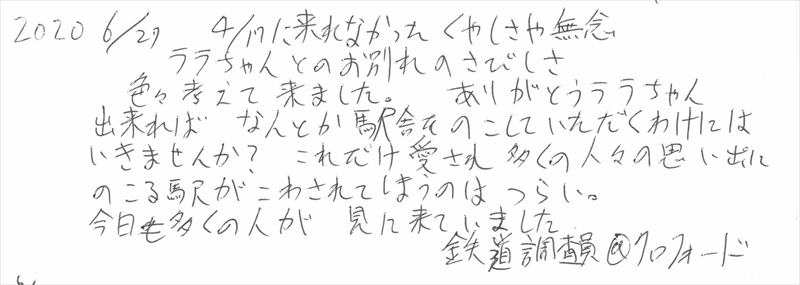 2020 6/27 4/17に来れなかったくやしさや無念
ララちゃんとのお別れのさびしさ
色々考えて来ました。 ありがとうララちゃん
出来れば なんとか駅舎をのこしていただくわけには
いきませんか? これだけ愛され 多くの人々の思い出に
のこる駅がこわされてしまうのは つらい。
今日も多くの人が 見に来ていました
鉄道調査員@クロフォード